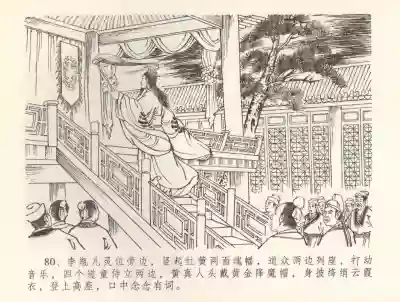 80. 李瓶儿灵位旁边,竖起红黄两面魂幡,道众两边列座,打动
音乐,四个道童侍立两边,黄真人头戴黄金降魔帽,身披绛绡云霞
衣,登上高座,口中念念有词。